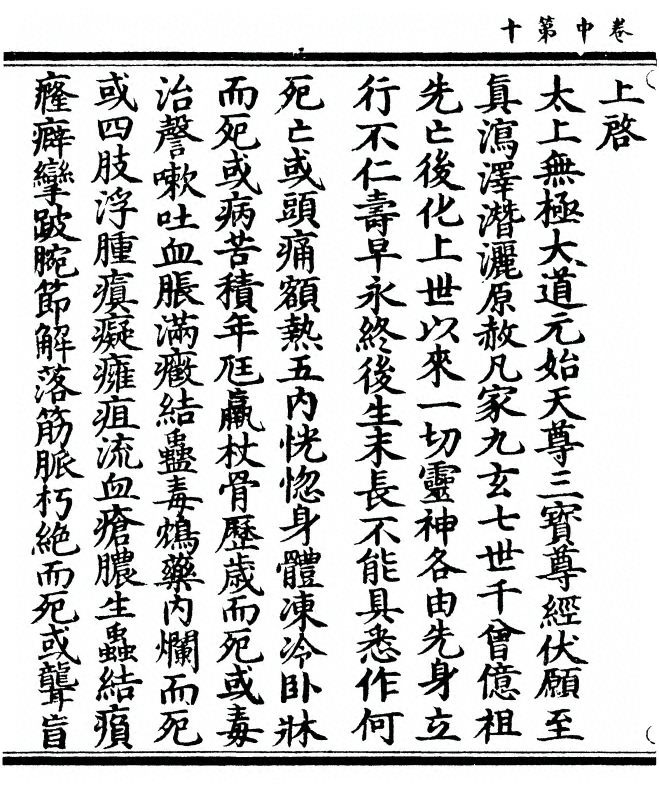 卷中第十
上啓
太上無極大道元始天尊三寶尊經伏願至
眞瀉澤潛灑原赦凡家九玄七世千曾億祖
先亡後化上世以來一切靈神各由先身立
行不仁壽早永終後生未長不能具悉作何
死亡或頭痛額熱五内恍惚身體凍冷卧牀
而死或病苦積年尫羸杖骨歷歲而死或毒
治謦嗽吐血脹滿癥結蠱毒鴆藥内爛而死
或四肢浮腫瘨癡癰疽流血瘡膿生蟲結癩
癃癖攣跛腕節解落筋脈朽絕而死或聾盲